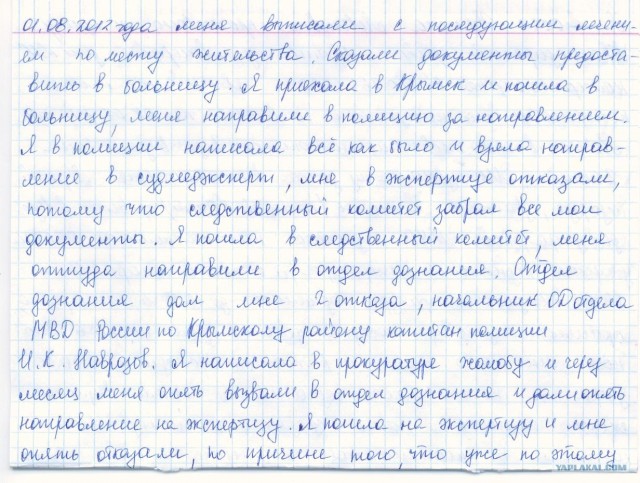 01.08.2012 года меня выписали с последующим лечени-
ем по месту жительства. Сказали документы предоста-
вить в больницу. Я приехала в Крымск и пошла в
больницу, меня направили в полицию за направлением.
Я в полиции написала всё как было и взяла направ-
ление в судмедэксперт, мне в экспертизе отказали,
потому что следственный комитет забрал все мои
документы. Я пошла в следственный комитет, меня
оттуда направили в отдел дознания. Отдел
дознания дал мне 2 отказа, начальник ОД отдела
МВД России по Крымскому району капитан полиции
И.К. Наврозов. Я написала в прокуратуре жалобу и через
месяц меня опять вызвали в отдел дознания и дали опять
направление на экспертизу. Я пошла на экспертизу и мне
опять отказали, по причине того, что уже по этому
YAPLAKAL.COM